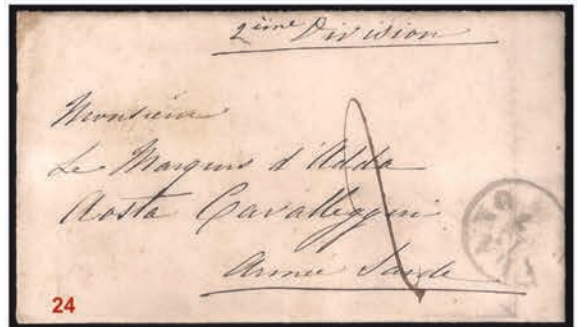 2ème Division
Monsieur
Le Marquis d'Adda
Aosta Cavalleggeri
Armée Sarde
24